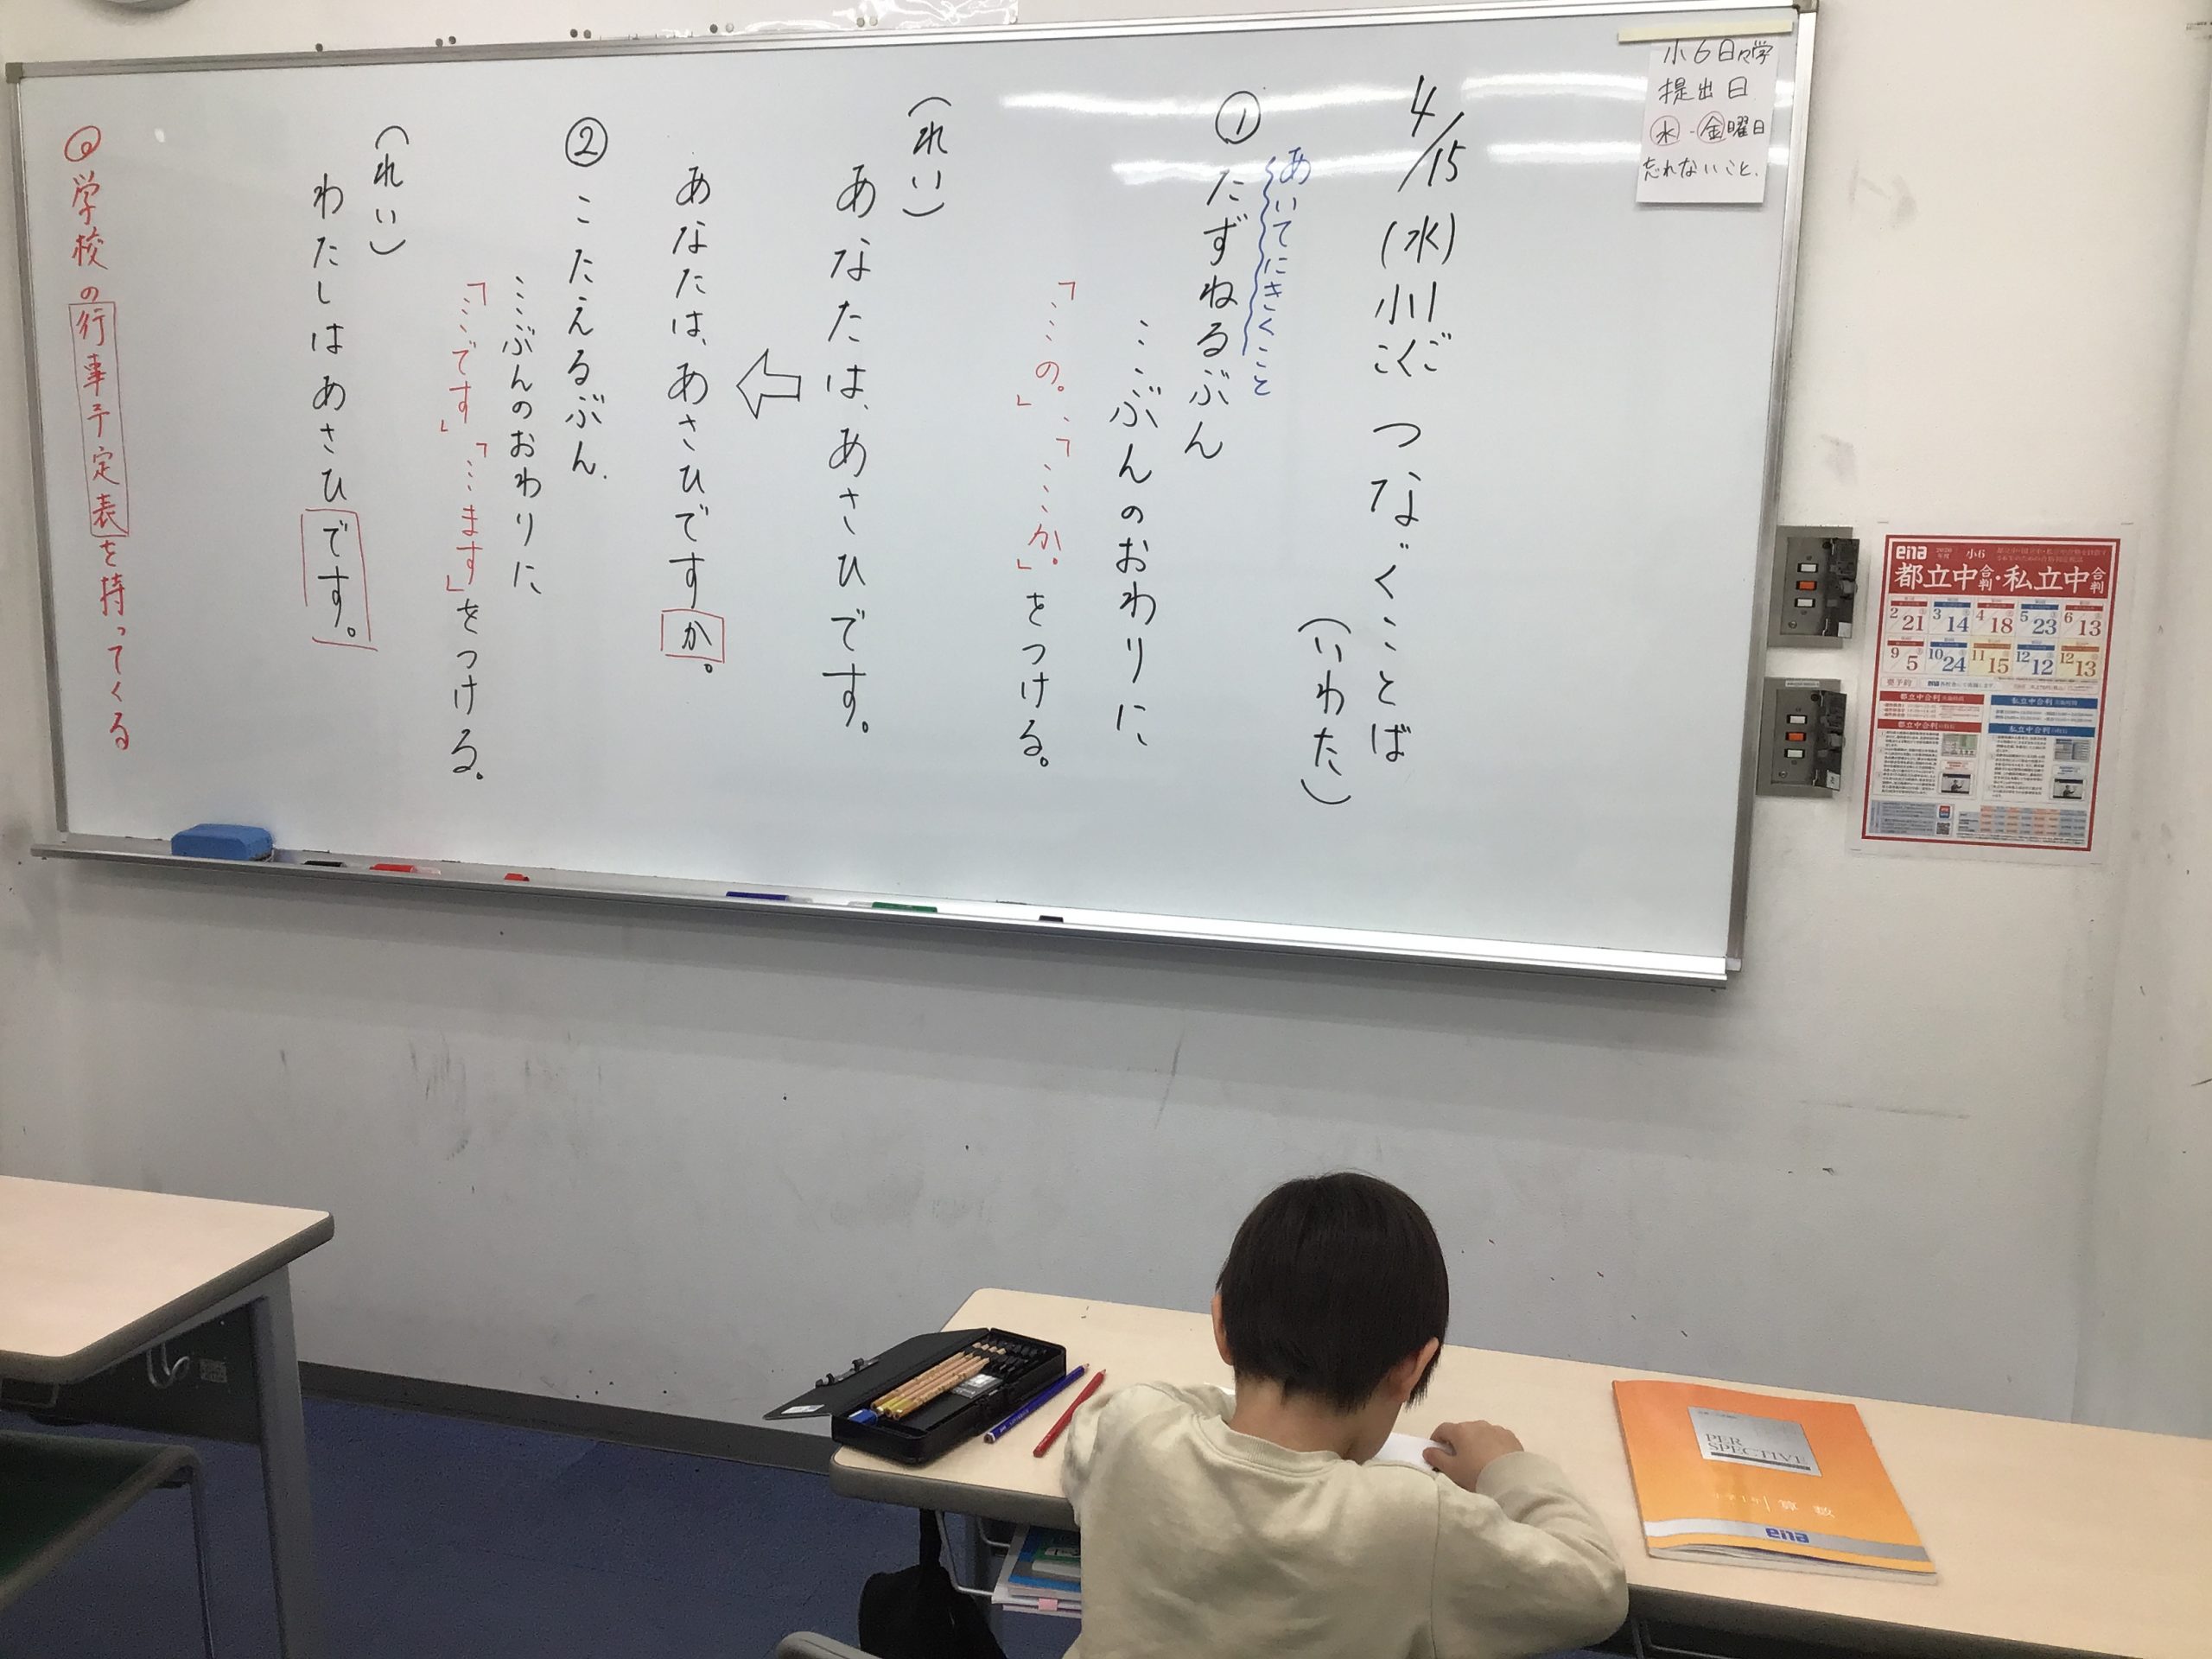 小6日々学
提出日
水・金曜日
忘れないこと.
4/15(水)小1こくご つなぐことば
(いわた)
あいてにきくこと
① たずねるぶん
…ぶんのおわりに
「…の。」、「…か。」をつける。
(れい)
あなたは、あさひです。
あなたは、あさひですか。
② こたえるぶん.
…ぶんのおわりに
「…です」「…ます」をつける。
(れい)
わたしはあさひです。
学校の行事予定表を持ってくる
ena 小6
都立中合判・私立中合判
2/21 3/14 4/18 5/23 6/13
9/5 10/24 11/15 12/12 12/13
要予約
都立中合判 私立中合判
都立中合判 私立中合判
PER
SPECTIVE
算数
ena